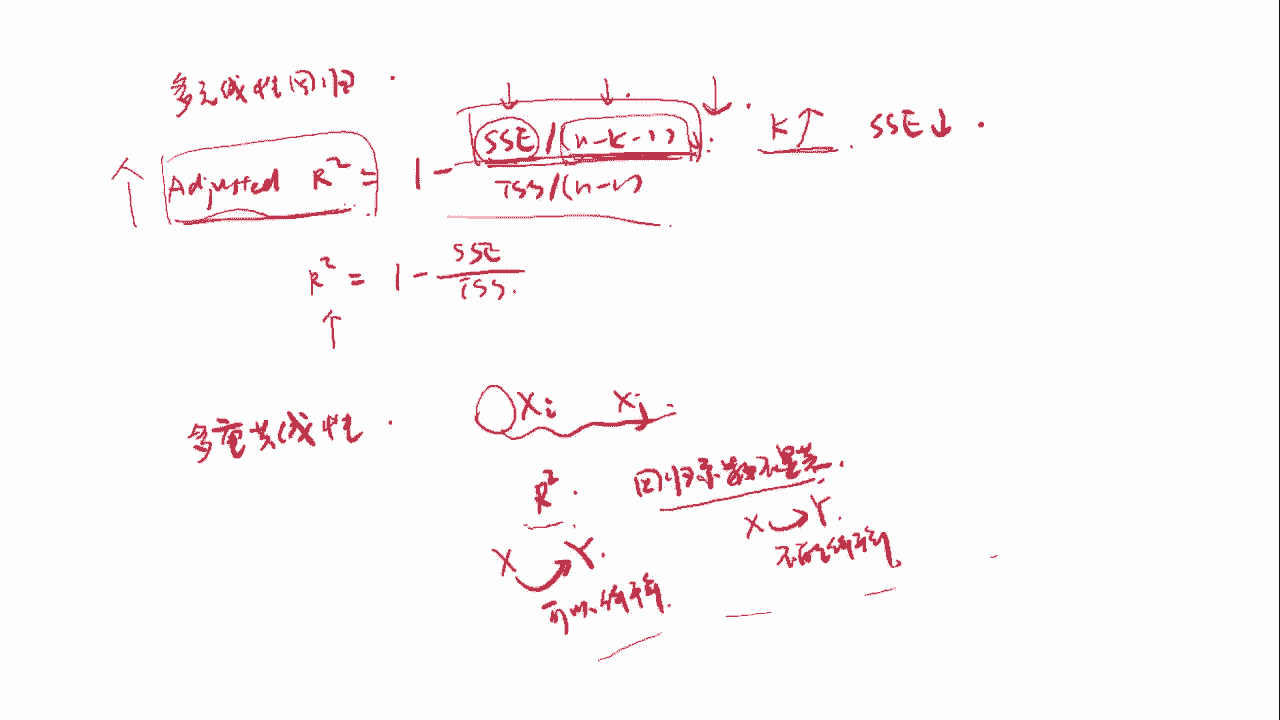 多元线性回归.
Adjusted R² = 1 - SSE/(n-k-1) / TSS/(n-1)
K↑ SSE↓.
R² = 1 - SSE/TSS.
多重共线性.
Xi Xj
R². 回归系数不显著.
X Y. 可以解释.
X Y. 不能解释.